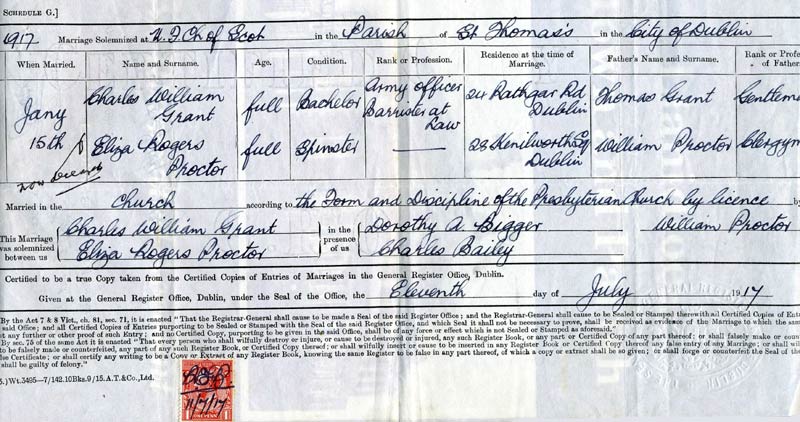 SCHEDULE G.]
1917 Marriage Solemnized at U. F. Ch of Scot in the Parish of St Thomas's in the City of Dublin
When Married. Name and Surname. Age. Condition. Rank or Profession. Residence at the time of Marriage. Father's Name and Surname. Rank or Profes of Father
Jany 15th
Charles William Grant full Bachelor Army Officer Barrister at Law 24 Rathgar Rd Dublin Thomas Grant Gentlem
Eliza Rogers Proctor full Spinster — 28 Kenilworth Sq Dublin William Proctor Clergym
now Decease
Married in the Church according to the Form and Discipline of the Presbyterian Church by licence b
This Marriage was solemnized between us
Charles William Grant
Eliza Rogers Proctor
in the presence of us
Dorothy A. Bigger
Charles Bailey
William Proctor
Certified to be a true Copy taken from the Certified Copies of Entries of Marriages in the General Register Office, Dublin.
Given at the General Register Office, Dublin, under the Seal of the Office, the Eleventh day of July 1917
By the Act 7 & 8 Vict., ch. 81, sec. 71, it is enacted "That the Registrar-General shall cause to be made a Seal of the said Register Office; and the Registrar-General shall cause to be Sealed or Stamped therewith all Certified Copies of Entries
said Office; and all Certified Copies of Entries purporting to be Sealed or Stamped with the Seal of the said Register Office, and which Seal it shall not be necessary to prove, shall be received as evidence of the Marriage to which the same
any further or other proof of such Entry; and no Certified Copy, purporting to be given in the said Office, shall be of any force or effect which is not Sealed or Stamped as aforesaid."
By sec. 75 of the same Act it is enacted "That every person who shall wilfully destroy or injure, or cause to be destroyed or injured, any such Register Book, or any part or Certified Copy of any part thereof; or shall falsely make or coun
to be falsely made or counterfeited, any part of any such Register Book, or Certified Copy thereof; or shall wilfully insert or cause to be inserted in any Register Book or Certified Copy thereof any false entry of any Marriage; or shall wil
the Certificate; or shall certify any writing to be a Copy or Extract of any Register Book, knowing the same Register to be false in any part thereof, of which a copy or extract shall be so given; or shall forge or counterfeit the Seal of th
shall be guilty of felony."
5.)Wt.3495—7/142.10Bks.9/15.A.T.&Co.,Ltd.
11/7/17
PENNY